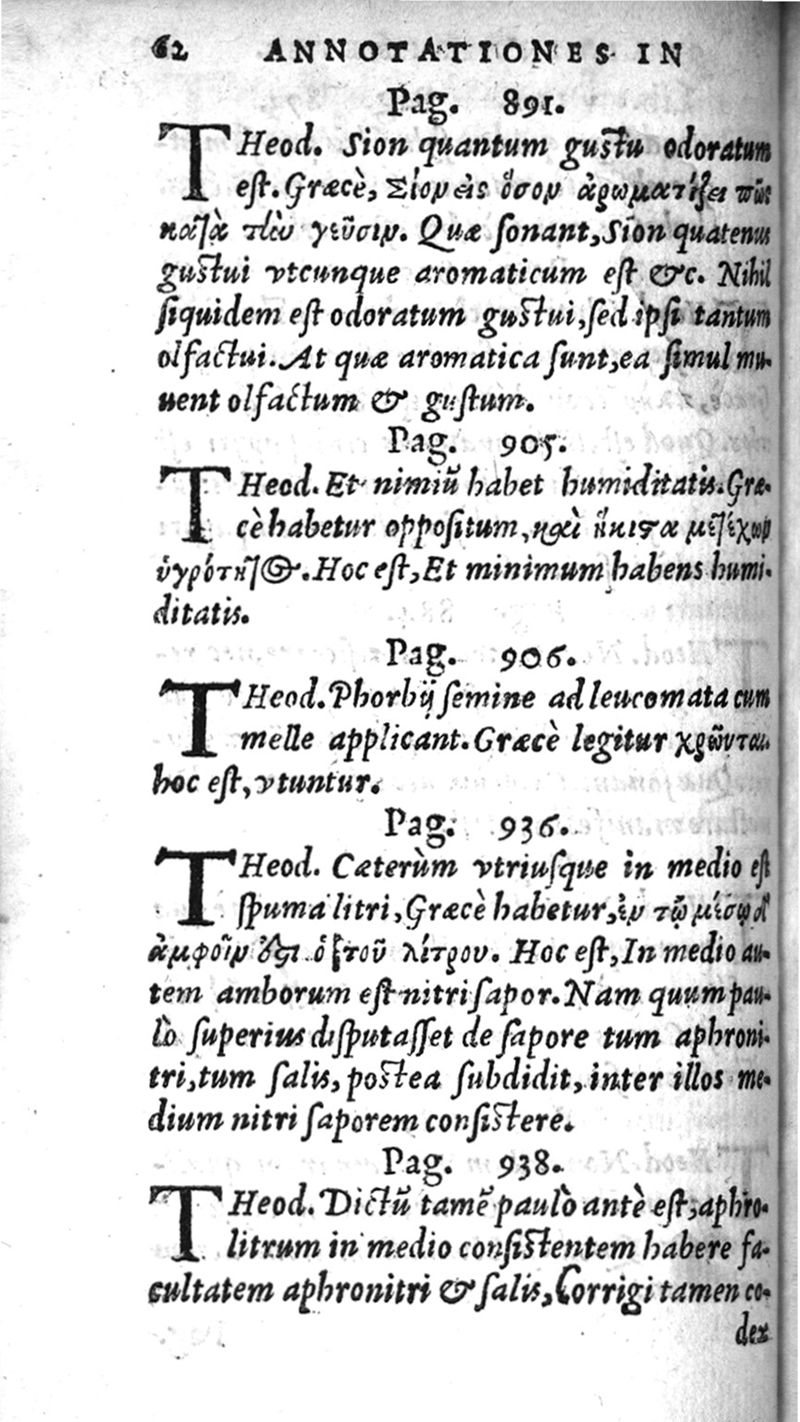 62 ANNOTATIONES IN
Pag. 891.
THeod. Sion quantum gustu odoratum
est. Græcè, Σίον εἰς ὅσον ἀρωματίζει πῶς
κατὰ τὴν γεῦσιν. Quæ sonant, Sion quatenus
gustui vtcunque aromaticum est &c. Nihil
siquidem est odoratum gustui, sed ipsi tantum
olfactui. At quæ aromatica sunt, ea simul mu-
uent olfactum & gustum.
Pag. 905.
THeod. Et nimiũ habet humiditatis. Græ-
cè habetur oppositum, καὶ ἥκιστα μετέχων
ὑγρότητος. Hoc est, Et minimum habens humi-
ditatis.
Pag. 906.
THeod. Phorbij semine ad leucomata cum
melle applicant. Græcè legitur χρῶνται.
hoc est, vtuntur.
Pag. 936.
THeod. Cæterùm vtriusque in medio est
spuma litri, Græcè habetur, ἐν τῷ μέσῳ δ'
ἀμφοῖν ἐστι ὁ τοῦ λίτρου. Hoc est, In medio au-
tem amborum est nitri sapor. Nam quum pau-
lò superius disputasset de sapore tum aphroni-
tri, tum salis, postea subdidit, inter illos me-
dium nitri saporem consistere.
Pag. 938.
THeod. Dictũ tamẽ paulò antè est, aphro-
litrum in medio consistentem habere fa-
cultatem aphronitri & salis, Corrigi tamen co-
dex